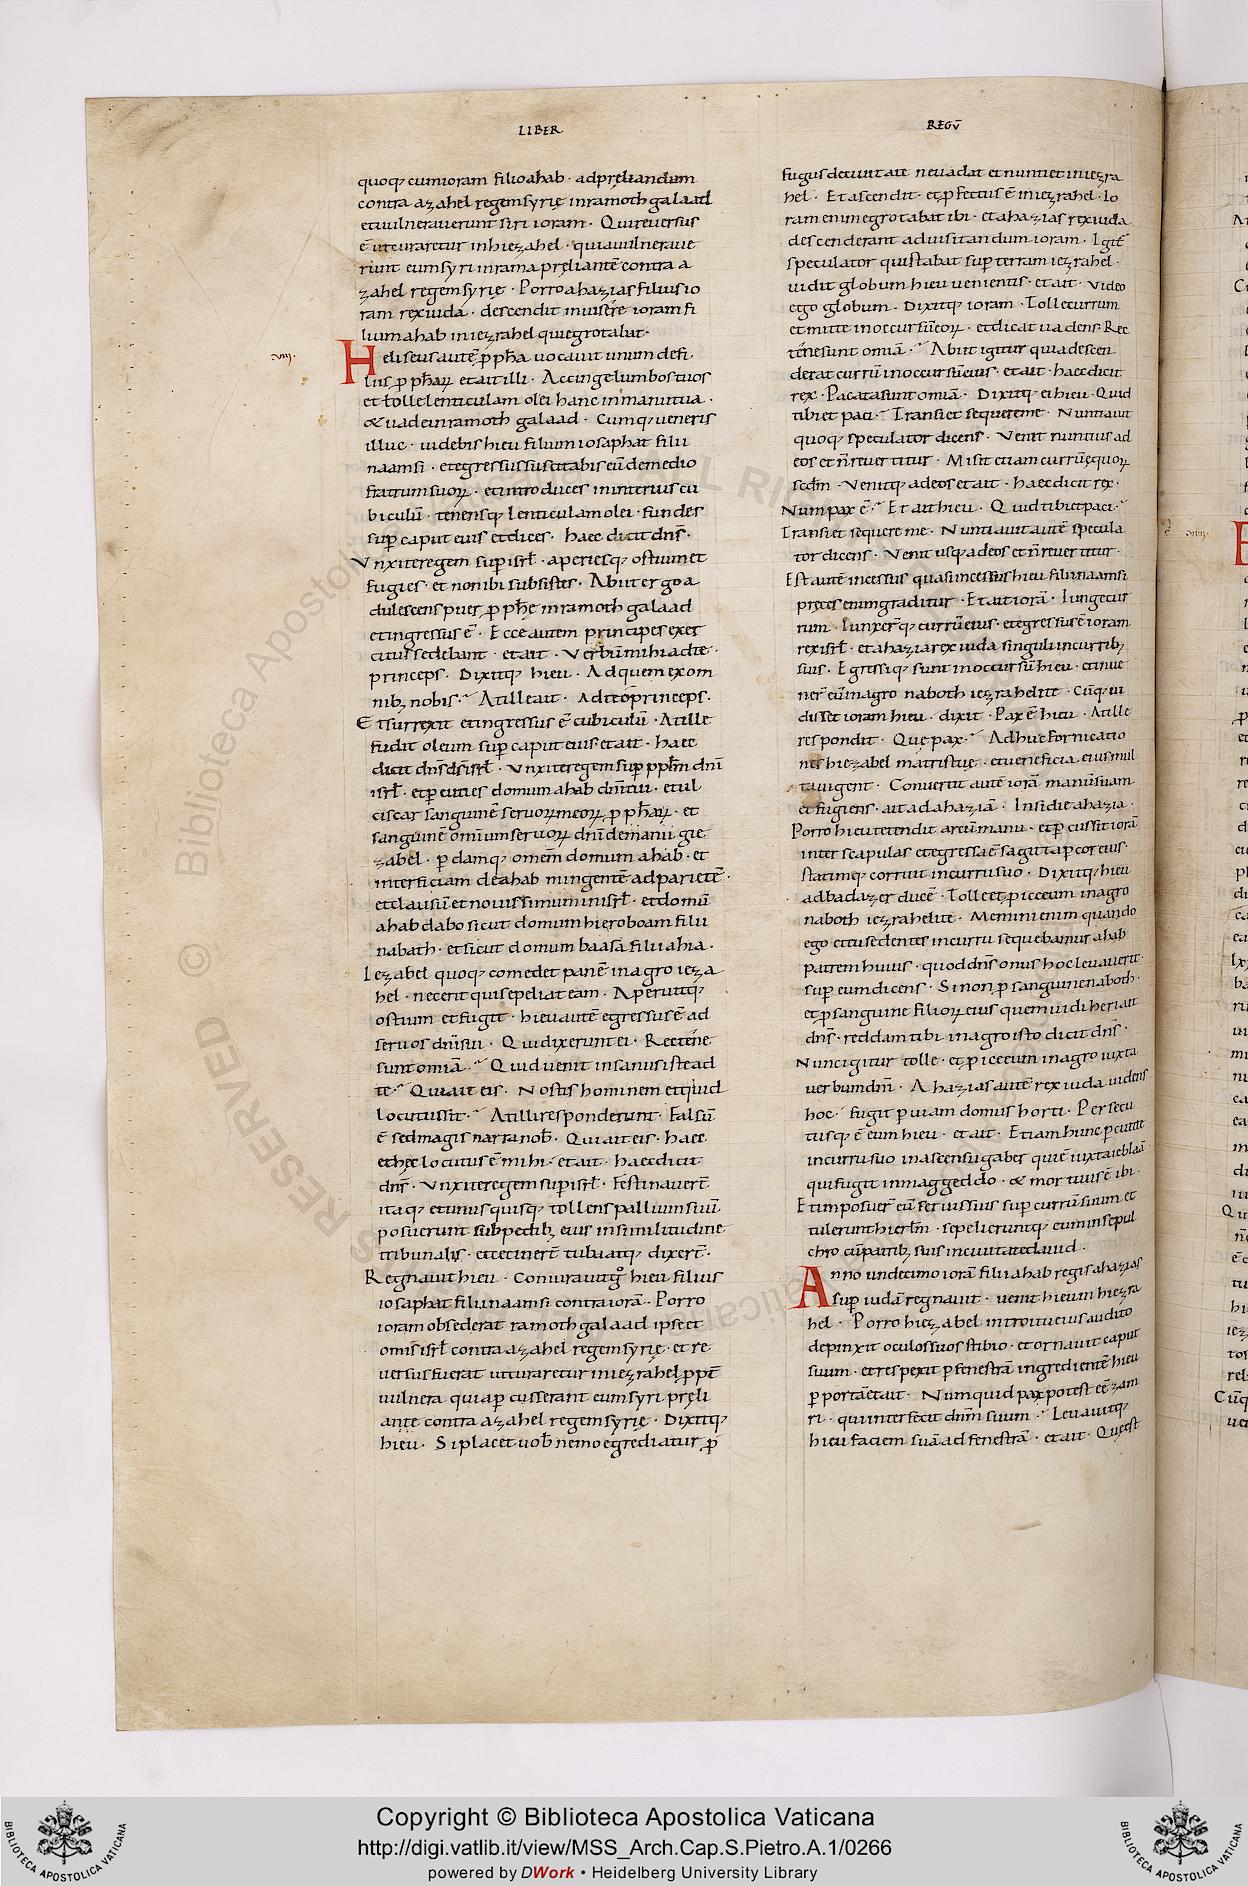 LIBER
quoq; cumioram filioahab · adpręliandum
contra azahel regemsyrię inramothgalaad
etuulnerauerunt siri ioram · Quireuersus
ē utcuraretur inhiezrahel · quiauulneraue
runt eumsyri inrama pręliantē contra a
zahel regemsyrię · Porro ahazias filius io
ram rexiuda · descendit inuisere ioram fi
liumahab iniezrahel quiegrotabat ·
viiii·
Heliseus autē ꝓpha uocauit unum defi
liis ꝓphaꝝ etaitilli · Accingelumbostuos
et tollelenticulam olei hanc inmanutua ·
& uadeinramoth galaad · Cumq; ueneris
illuc · uidebis hieu filium iosaphat filii
naamsi · etegressussuscitabis eū demedio
fratrumsuoꝝ · etintroduces ininterius cu
biculū · tenensq; lenticulamolei · fundes
suꝑ caput eius etdices · haec dicit dnſ ·
Vnxiteregem suꝑ isrł · aperiesq; ostiumet
fugies · et nonibi subsistes · Abiitergoa
dulescenspuer ꝓphę inramoth galaad
etingressusē · Ecceautem principes exer
citus sedebant · etait · Verbū mihi adte ·
princeps · Dixitq; hieu · Adquemexom
nib; nobis · Atilleait · Adte oprinceps ·
Etsurrexit etingressus ē cubiculū · Atille
fudit oleum suꝑ caput eius etait · haec
dicit dnſ dſ isrł · Vnxiteregemsuꝑ ꝓplm dnī
isrł · etꝑcuties domum ahab dnītui · etul
ciscar sanguinē seruoꝝ meoꝝ ꝓphaꝝ · et
sanguinē omiumseruoꝝ dnī demanu gie
zabel · ꝑdamq; omem domum ahab · et
interficiam deahab mingentē adparietē ·
etclausū et nouissimum inisrł · etdomū
ahab dabo sicut domum hieroboam filii
nabath · etsicut domum baasa filii ahia ·
Iezabel quoq; comedet panē inagro iezra
hel · necerit quisepeliat eam · Aperuitq;
ostium etfugit · hieuautē egressus ē ad
seruos dnīsui · Quidixerunt ei · Rectene
sunt omia · Quid uenit insanus istead
te · Quiait eis · Nostis hominem etquid
locutussit · Atilliresponderunt · Falsū
ē sedmagis narranob · Quiait eis · haec
ethęc locutus ē mihi · etait · haecdicit
dnſ · Vnxiteregem suꝑ isrł · Festinauerē
itaq; etunusquisq; tollens palliumsuū
posuerunt subpedib; eius insimilitudine
tribunalis · etcecinerē tubaatq; dixerē ·
Regnauithieu · Coniurauitgͦ hieu filius
iosaphat filii naamsi contraiorā · Porro
ioram obsederat ramothgalaad ipse et
omis isrł contra azahel regemsyrię · et re
uersusfuerat utcuraretur iniezrahel ꝓpt
uulnera quiaꝑcusserant eumsyri pręli
ante contra azahel regemsyrię · Dixitq;
hieu · Siplacetuob nemoegrediatur ꝓ
REGV̄
fugus deciuitate neuadat etnuntiet iniezra
hel · Etascendit · etꝓfectus ē iniezrahel · Io
ram enim egrotabat ibi · etahazias rexiuda
descenderant aduisitandumioram · Igit
speculator quistabat suꝑ terram iezrahel ·
uidit globum hieu uenientis · etait · Video
ego globum · Dixitq; ioram · Tollecurrum
etmitte inoccursūeoꝝ · etdicat uadens · Rec
tene sunt omia · Abiit igitur quiadescen
derat currū inoccursū eius · etait · haecdicit
rex · Pacatasunt omia · Dixitq; eihieu · Quid
tibiet paci · Transiet sequereme · Nuntiauit
quoq; speculator dicens · Venit nuntius ad
eos et n̄ reuertitur · Misit etiam currū equoꝝ
scdm · Venitq; adeos etait · haecdicit rex ·
Numpax ē · Etaithieu · Quidtibietpaci ·
Transiet sequere me · Nuntiauit autē specula
tor dicens · Venit usq; adeos et n̄ reuertitur ·
Estautē incessus quasiincessus hieu filiinaamsi
preces enimgraditur · Etaitiorā · Iungecur
rum · Iunxerq; currū eius · etegressus ē ioram
rexisrł · etahazias rex iuda singuli incurrib;
suis · Egressiq; sunt inoccursū hieu · etinue
ner eū inagro naboth iezrahelite · Cūq; ui
disset ioram hieu · dixit · Pax ē hieu · Atille
respondit · Quę pax · Adhucfornicatio
nes hiezabel matristuę · etueneficia eiusmul
tauigent · Conuertit autē iorā manūsuam
etfugiens · aitadahaziā · Insidię ahazia ·
Porro hieutetendit arcūmanu · etꝑcussitiorā
inter scapulas etegressa ē sagittaꝑ cor eius ·
statimq; corruit incurrusuo · Dixitq; hieu
adbadazer ducē · Tolleet ꝓiceeum inagro
naboth iezrahelite · Meminienim quando
ego ettusedentes incurru sequebamur ahab
patremhuius · quoddnſ onus hocleuauerit
suꝑ eumdicens · Sinon ꝓ sanguinenaboth ·
etꝓ sanguine filioꝝ eius quemuidiheri ait
dnſ · reddamtibi inagroisto dicit dnſ ·
Nuncigitur tolle · etꝓiceeum inagro iuxta
uerbumdnī · Ahazias autē rex iuda uidens
hoc · fugit ꝑuiam domus horti · Persecu
tusq; ē eum hieu · etait · Etiamhunc ꝑcutite
incurrusuo inascensugaber quiē iuxtaieblaā
quifugit inmaggeddo · & mortuus ē ibi ·
Etimposuer eū serui eius suꝑ currū suum et
tulerunthierlm · sepelieruntq; eum insepul
chro cū patrib; suis inciuitatedauid ·
Anno undecimo iorā filii ahab regis ahazias
suꝑ iudā regnauit · uenit hieuin hiezra
hel · Porro hiezabel introitueius audito
depinxit oculossuos stibio · etornauit caput
suum · etrespexit ꝑfenestrā ingredientē hieu
ꝑ portā etait · Numquid pax potest ēē zam
ri · quiinterfecit dnm suum · Leuauitq;
hieu faciem suā ad fenestrā · etait · Quęest
viiii·
Copyright © Biblioteca Apostolica Vaticana
http://digi.vatlib.it/view/MSS_Arch.Cap.S.Pietro.A.1/0266
powered by DWork • Heidelberg University Library